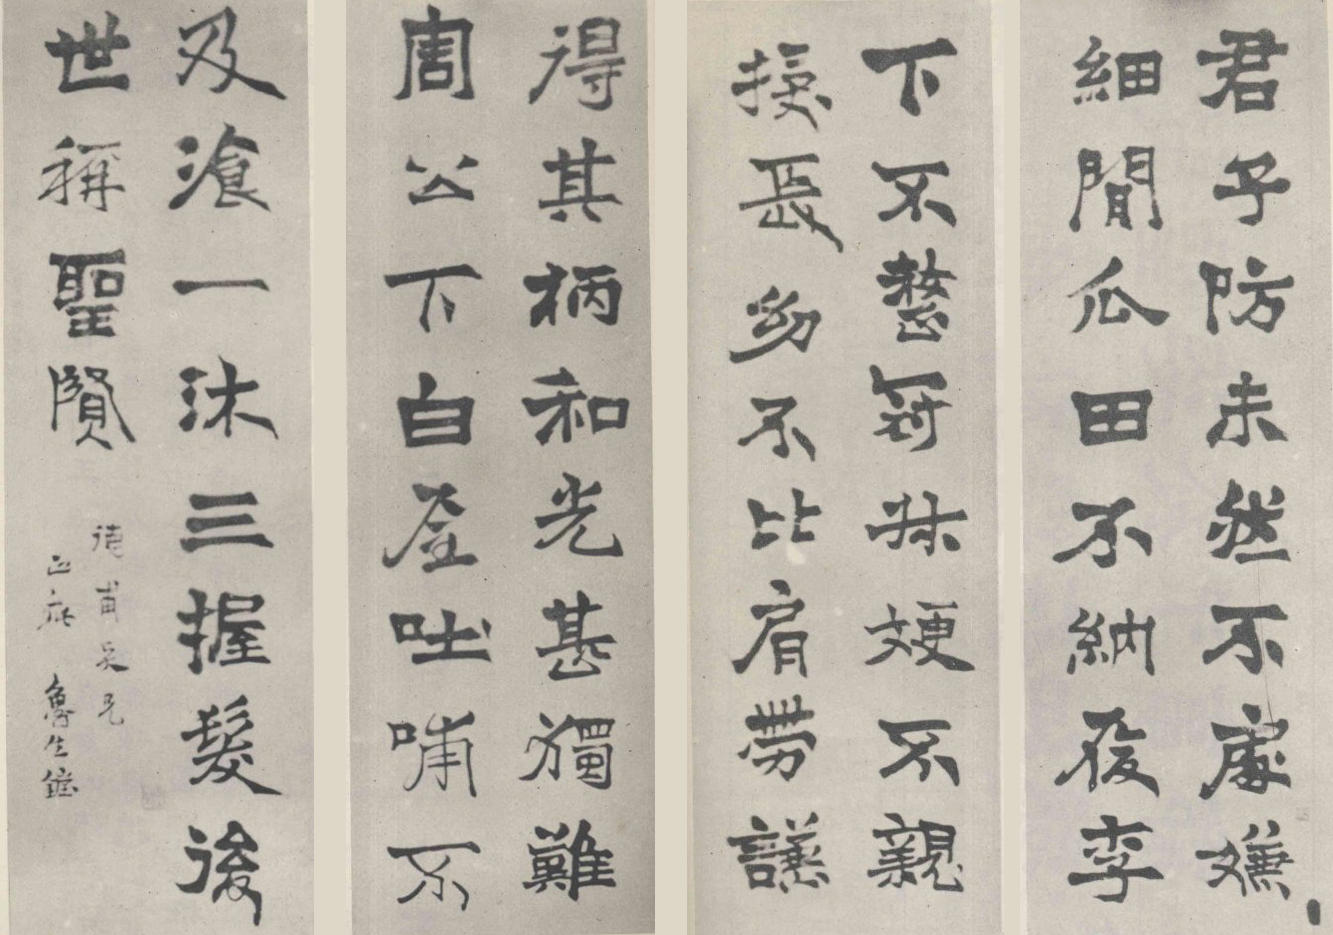 君子防未然不處嫌
細閒瓜田不納履李
下不整冠叔嫂不親
授長幼不比肩勞謙
得其柄和光甚獨難
周公下白屋吐哺不
及湌一沐三握髮後
世稱聖賢
德甫兄
正疵
魯生鐘